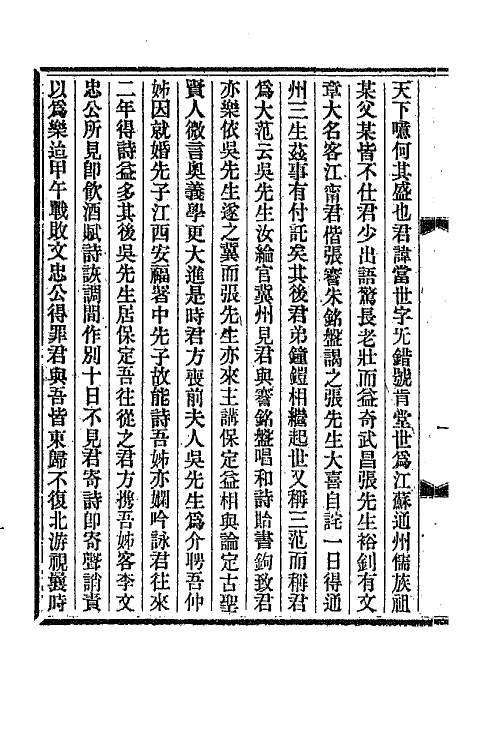 天下噫何其盛也君諱當世字无錯號肯堂世爲江蘇通州儒族祖
某父某皆不仕君少出語驚長老壯而益奇武昌張先生裕釗有文
章大名客江甯君偕張謇朱銘盤謁之張先生大喜自詫一日得通
州三生茲事有付託矣其後君弟鐘鎧相繼起世又稱三范而稱君
爲大范云吳先生汝綸官冀州見君與謇銘盤唱和詩貽書鉤致君
亦樂依吳先生遂之冀而張先生亦來主講保定益相與論定古聖
賢人微言奧義學更大進是時君方喪前夫人吳先生爲介聘吾仲
姊因就婚先子江西安福署中先子故能詩吾姊亦嫻吟詠君往來
二年得詩益多其後吳先生居保定吾往從之君方携吾姊客李文
忠公所見卽飮酒賦詩詼調間作別十日不見君寄詩卽寄聲誚責
以爲樂迨甲午戰敗文忠公得罪君與吾皆東歸不復北游視曩時